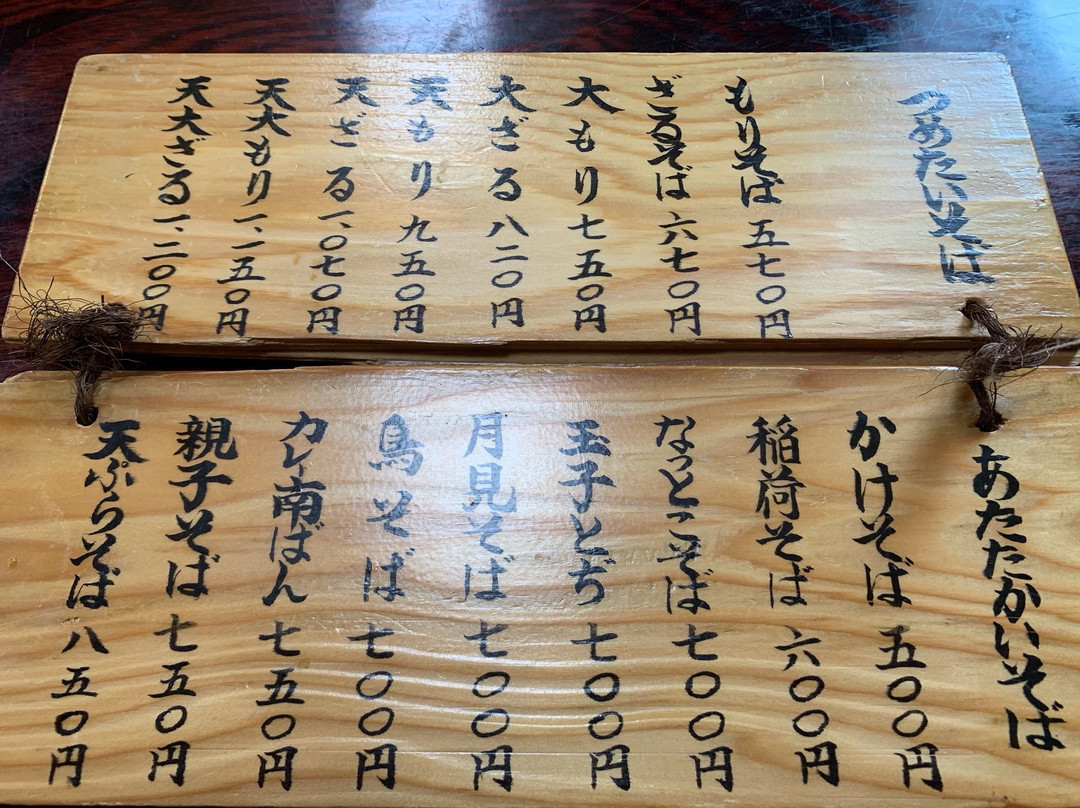 つめたいそば
もりそば 五七〇円
ざるそば 六七〇円
大もり 七五〇円
大ざる 八二〇円
天もり 九五〇円
天ざる 一、〇七〇円
天大もり 一、一五〇円
天大ざる 一、二〇〇円
あたたかいそば
かけそば 五〇〇円
稲荷そば 六〇〇円
なっとこそば 七〇〇円
玉子とぢ 七〇〇円
月見そば 七〇〇円
鳥そば 七〇〇円
カレー南ばん 七五〇円
親子そば 七五〇円
天ぷらそば 八五〇円